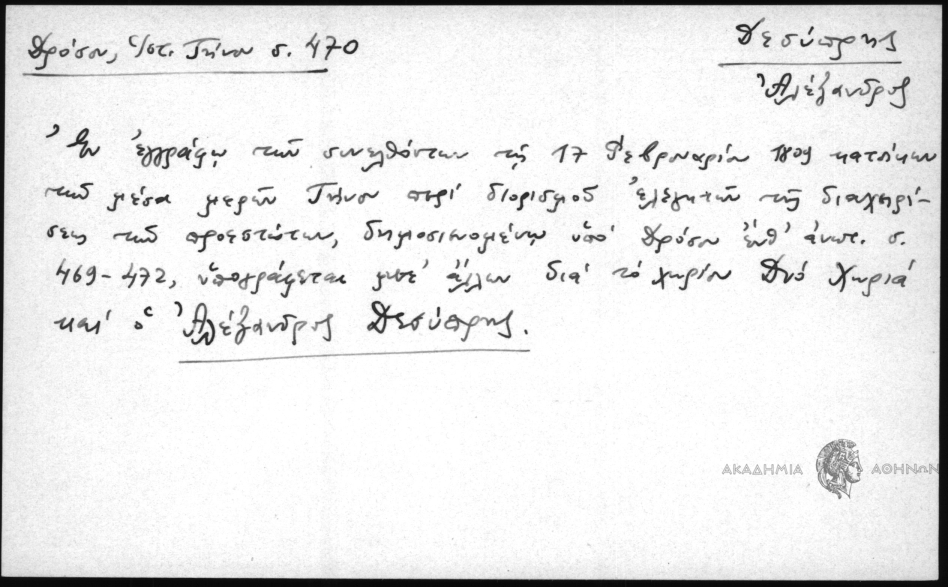 Δρόσου, Ἱστ. Τήνου σ. 470
Δεσύπρης
Ἀλέξανδρος
Ἐν ἐγγράφῳ τῶν συνελθόντων τῇ 17 Φεβρουαρίου 1809 κατοίκων
τῶν μέσα μερῶν Τήνου περί διορισμοῦ ἐλεγκτῶν τῆς διαχειρί-
σεως τῶν προεστώτων, δημοσιευομένῳ ὑπό Δρόσου ἐνθ' ἀνωτ. σ.
469-472, ὑπογράφεται μετ' ἄλλων διά τό χωρίον Δυό Χωριά
καί ὁ Ἀλέξανδρος Δεσύπρης.
ΑΚΑΔΗΜΙΑ ΑΘΗΝΩΝ